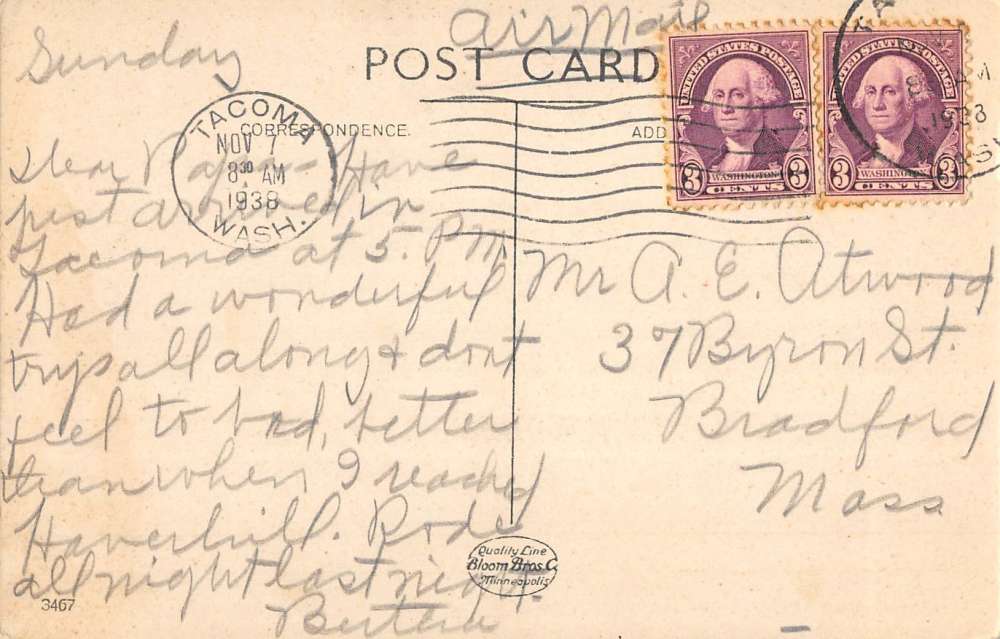 Air Mail
Sunday
POST CARD
CORRESPONDENCE.
ADD
TACOMA
NOV 7
8 30 AM
1938
WASH.
UNITED STATES POSTAGE
3 WASHINGTON 3
CENTS
UNITED STATES POSTAGE
3 WASHINGTON 3
CENTS
AM
1938
Dear Papa - Have
just arrived in
Tacoma at 5. P.M.
Had a wonderful
trip all along & dont
feel to bad, better
than when I reached
Haverhill. Rode
all night last night.
Bertha
Mr A. E. Atwood
37 Byron St.
Bradford
Mass
Quality Line
Bloom Bros. Co
Minneapolis
3467